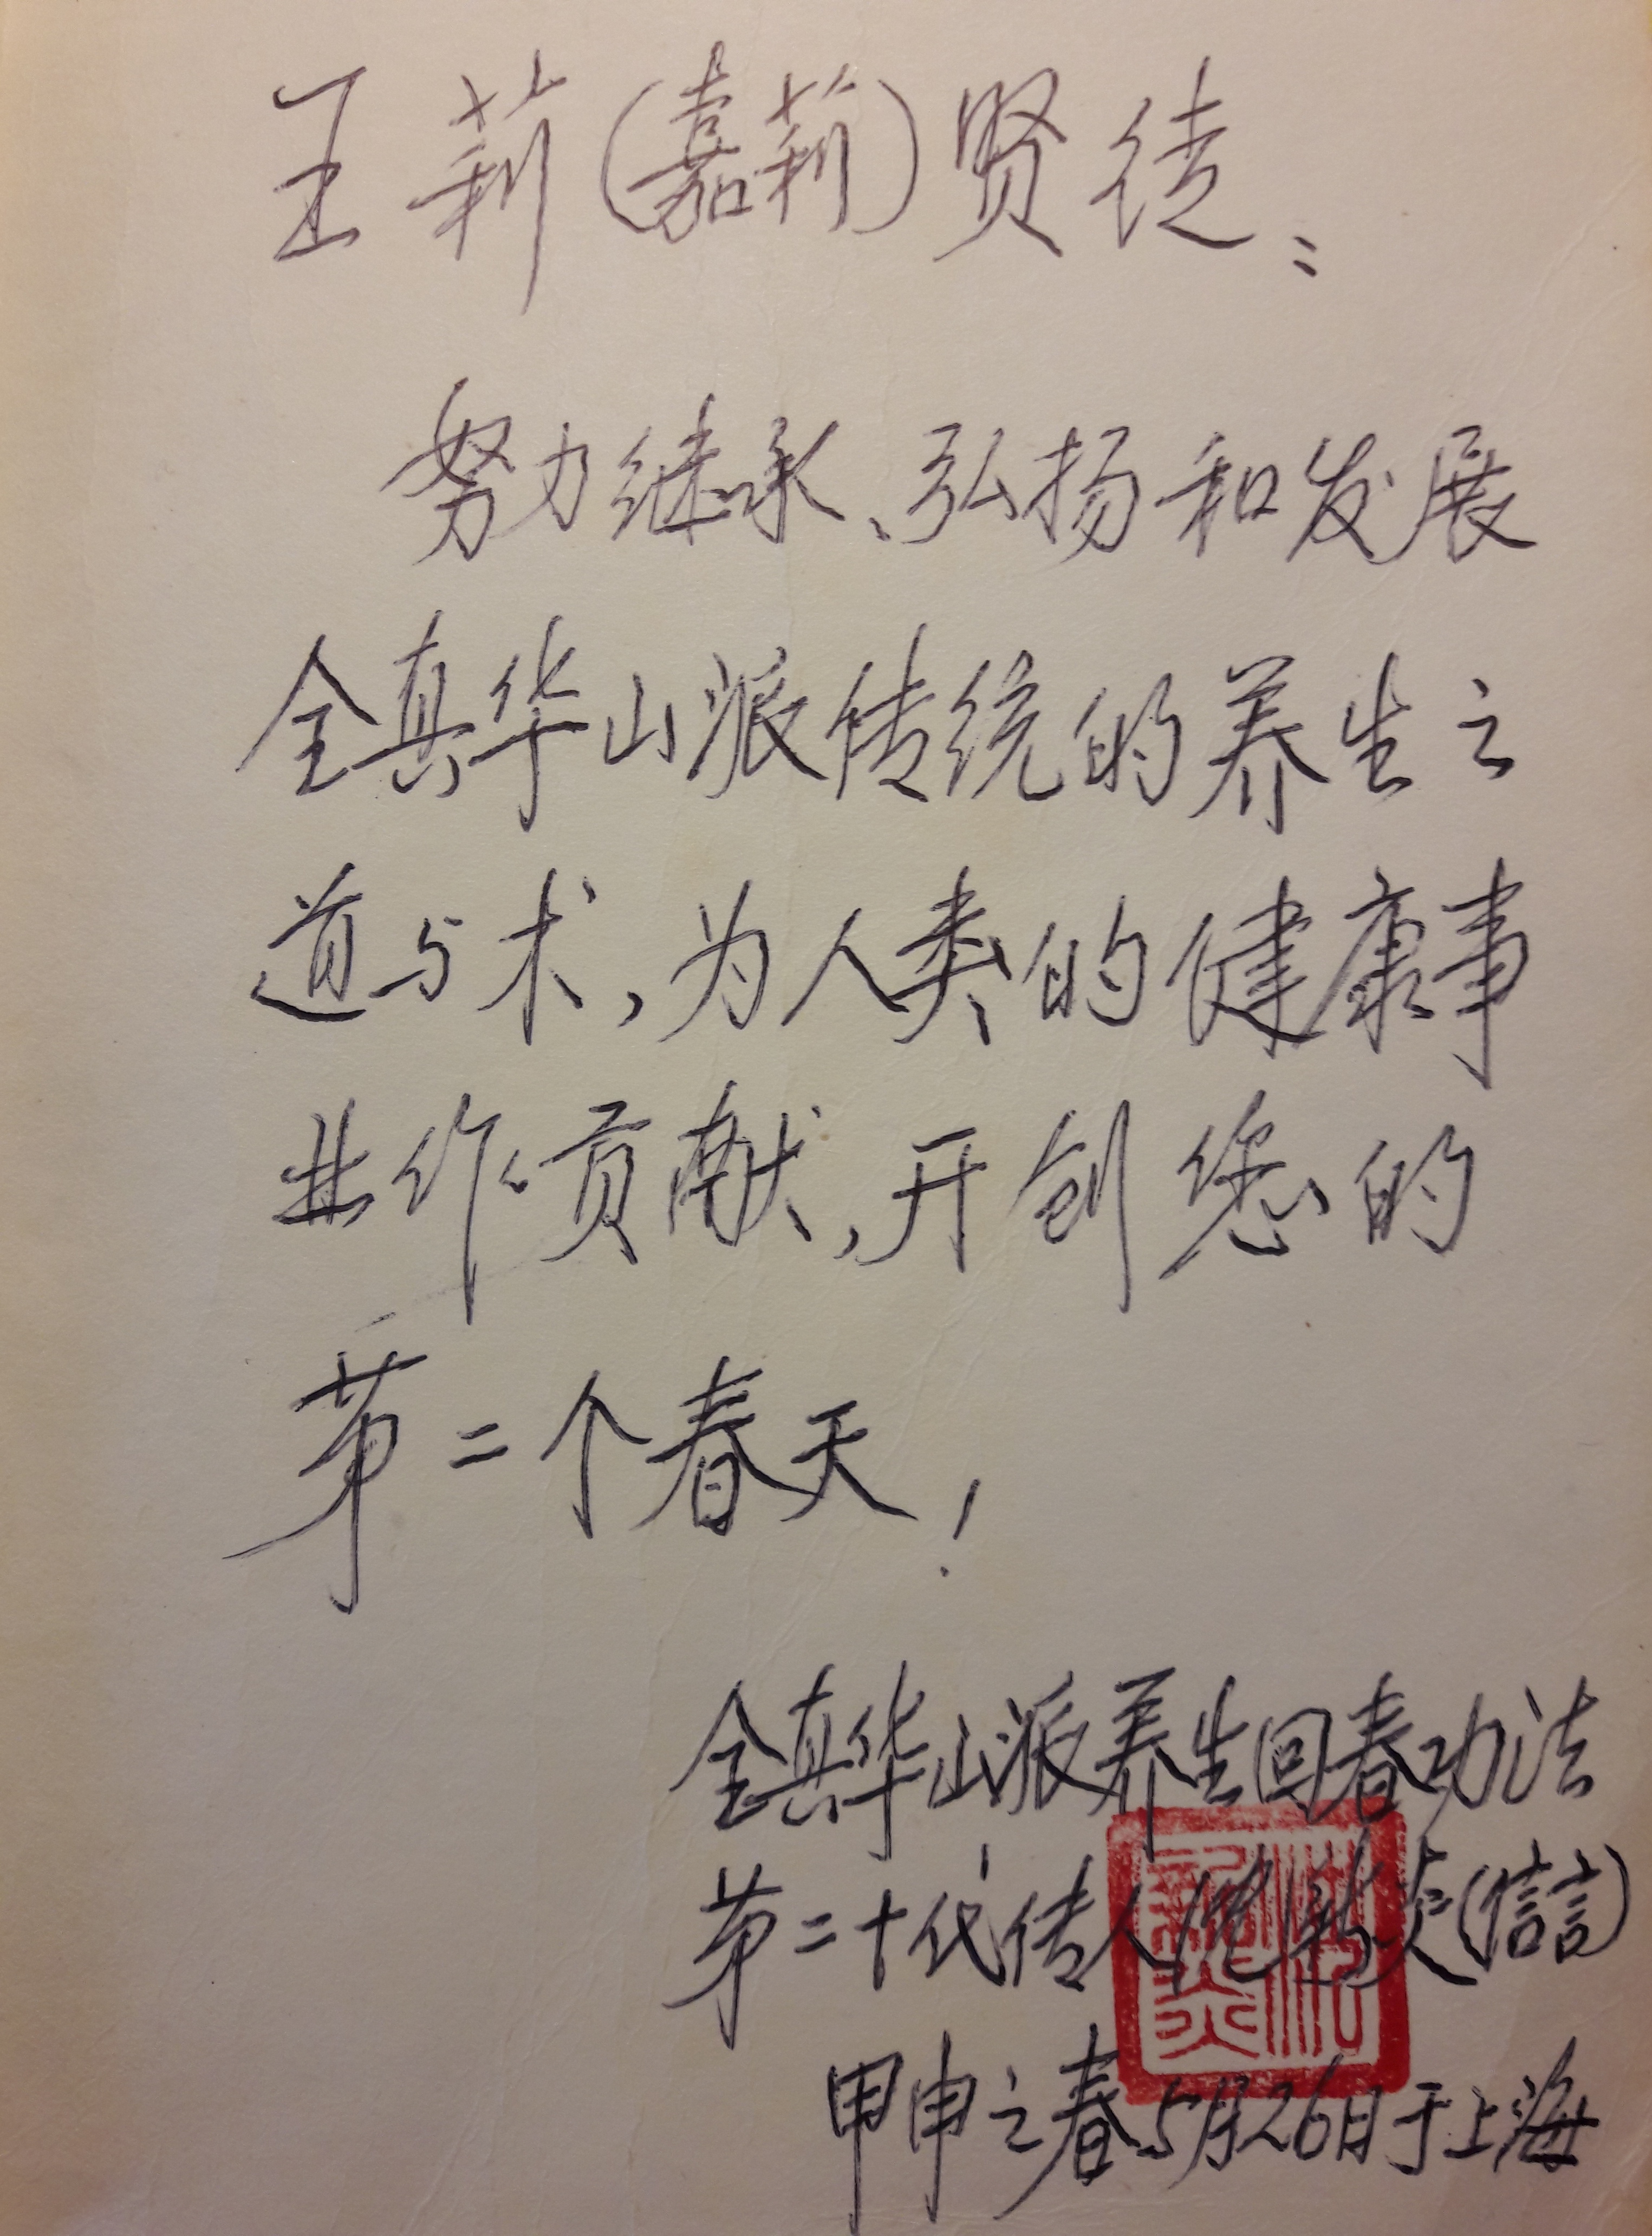 王莉(嘉莉)贤徒:
努力继承、弘扬和发展
全真华山派传统的养生之
道与术,为人类的健康事
业作贡献,开创您的
第二个春天!
全真华山派养生回春功法
第二十代传人沈新炎(信言)
甲申之春5月26日于上海